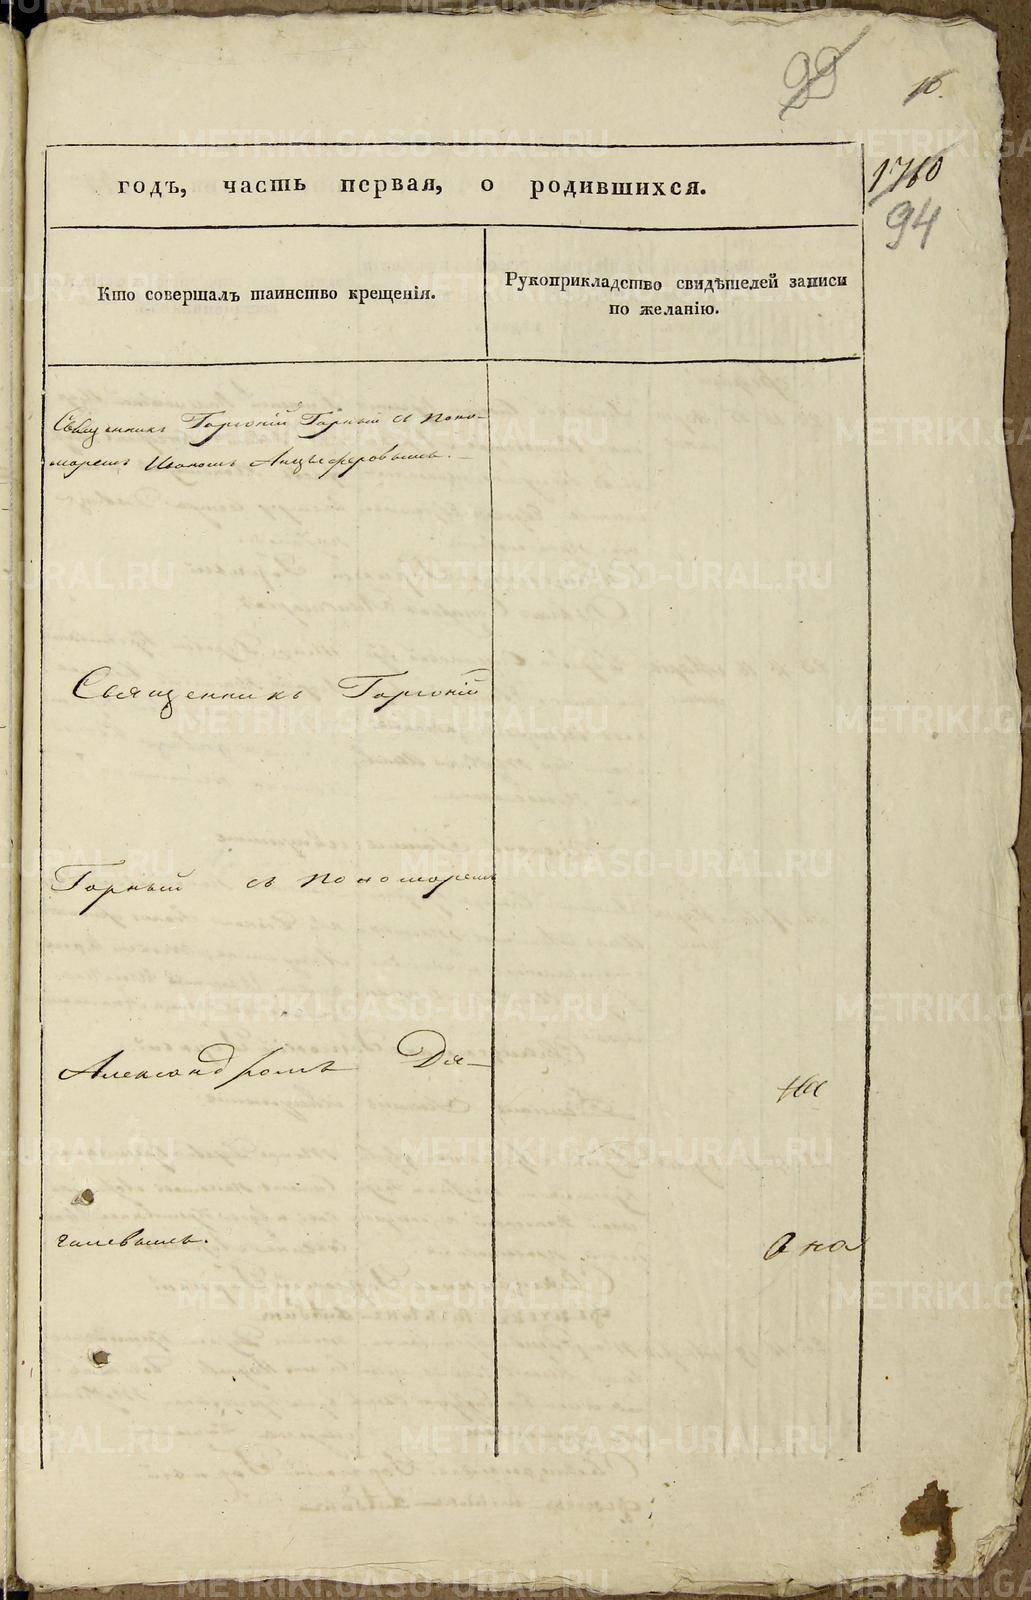 99
10.
1760
94
годъ, часть первая, о родившихся.
Кто совершалъ таинство крещенія.
Рукоприкладство свидѣтелей записи
по желанію.
Священникъ Горгоній Горный съ поно-
моремъ Иваномъ Анцыферовымъ.
Священникъ Горгоній
Горный съ пономоремъ
Александромъ Дя-
гилевымъ.
она
METRIKI.GASO-URAL.RU